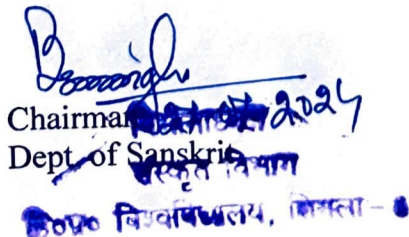 Chairman
2024
Dept. of Sanskrit
संस्कृत विभाग
हि०प्र० विश्वविद्यालय, शिमला -